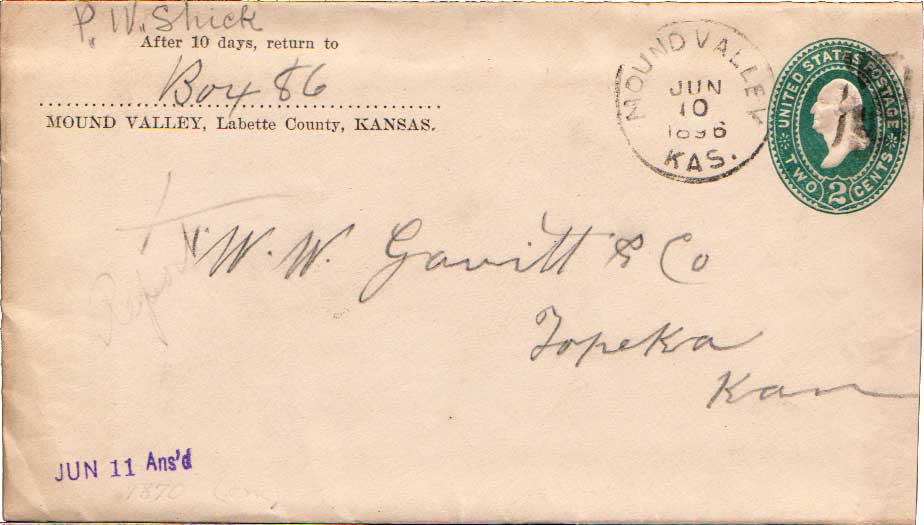 P. W. Shick
After 10 days, return to
Box 86
MOUND VALLEY, Labette County, KANSAS.
MOUND VALLEY
JUN
10
1896
KAS.
UNITED STATES POSTAGE
TWO 2 CENTS
W. W. Gavitt & Co
Topeka
Kan
Report
JUN 11 Ans'd
1870